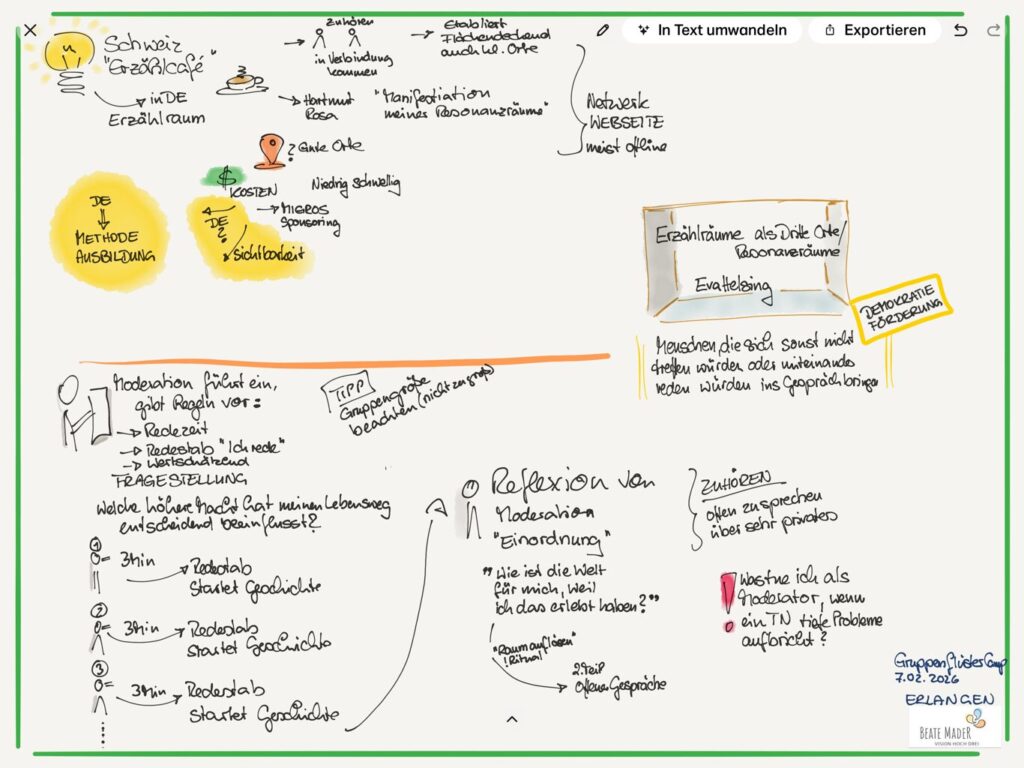 In Text umwandeln
Exportieren
Schweiz
"Erzählcafé"
in DE
Erzählraum
zuhören
in Verbindung
kommen
Etabliert
Flächendeckend
auch kl. Orte
Hartmut
Rosa
"Manifestiation
meiner Resonanzräume"
Netwerk
WEBSEITE
meist offline
? Gute Orte
$
KOSTEN
Niedrig schwellig
MIGROS
Sponsoring
DE
?
Sichtbarkeit
DE
METHODE
AUSBILDUNG
Erzählräume als Dritte Orte/
Resonanzräume
DEMOKRATIE
FÖRDERUNG
Menschen, die sich sonst nicht
treffen würden oder miteinande
reden würden ins Gespräch bringen
Moderation führt ein,
gibt Regeln vor:
Redezeit
Redestab "Ich rede"
Wertschätzend
FRAGESTELLUNG
Welche höhere Macht hat meinen Lebensweg
entscheidend beeinflusst?
TIPP
Gruppengröße
beachten (nicht zu groß)
1
3 Min
Redestab
Startet Geschichte
2
3 Min
Redestab
startet Geschichte
3
3 Min
Redestab
Startet Geschichte
Reflexion von
Moderation
"Einordnung"
"Wie ist die Welt
für mich, weil
ich das erlebt haben?"
"Raum auflösen"
! Ritual
2. Teil
Offene Gespräche
ZUHÖREN
Offen zu sprechen
über sehr privates
! Was tue ich als
Moderator, wenn
ein TN tiefe Probleme
aufbricht?
GruppenflüsterCamp
7.02.2026
ERLANGEN
BEATE MADER
VISION HOCH DREI